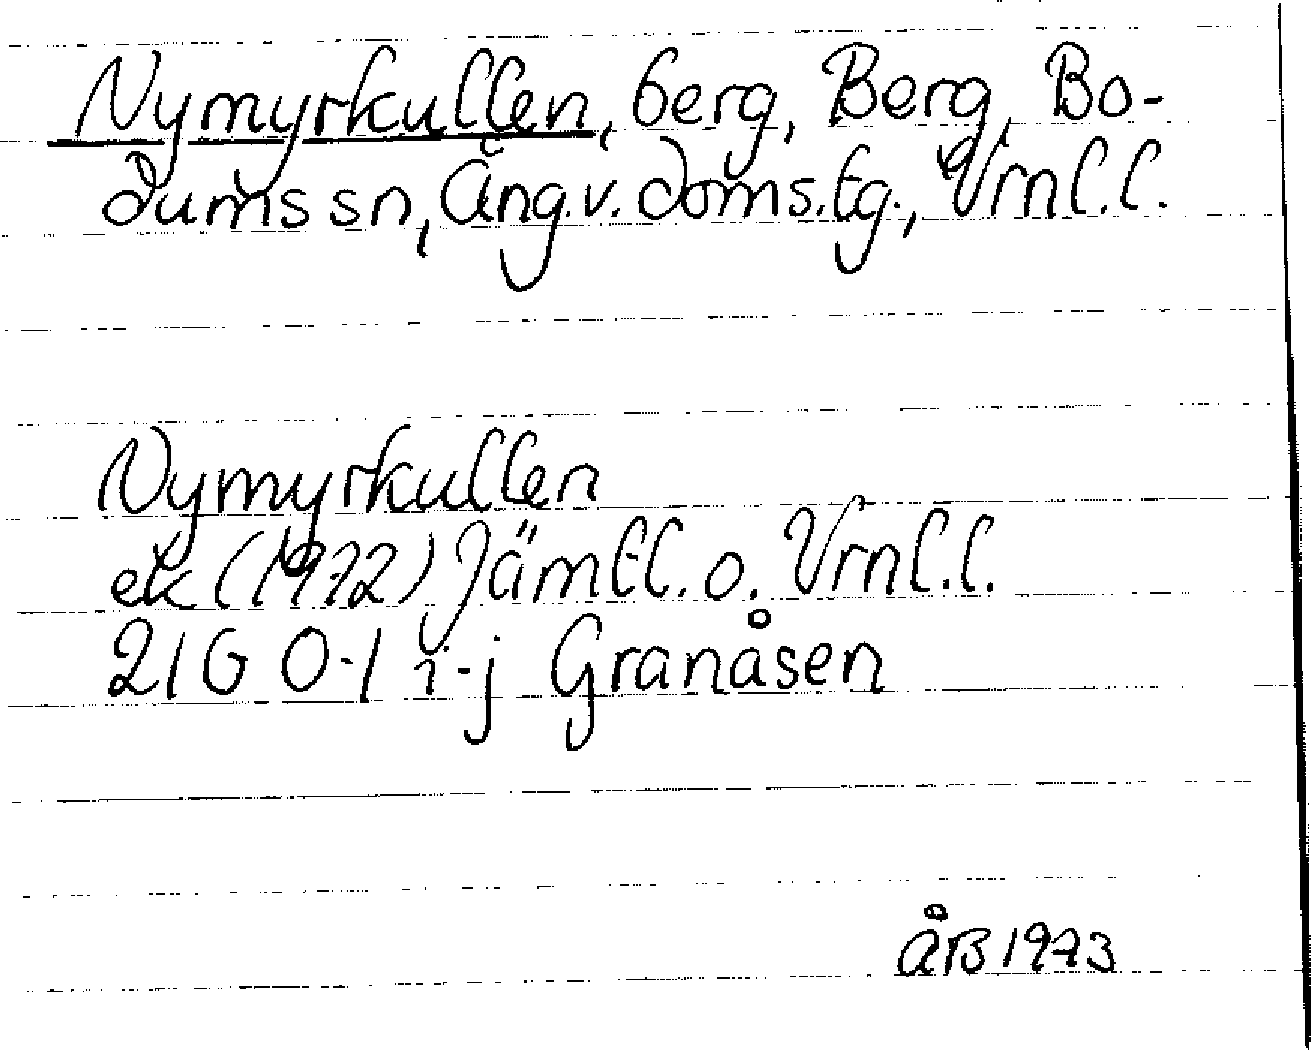 Nymyrkullen, berg, Berg, Bo-
dums sn, Ång.v. doms.tg., Vrnl.l.
Nymyrkullen
ek (1972) Jämtl.l. o. Vrnl.l.
21G 0-1 i-j Granåsen
ÅB 1973